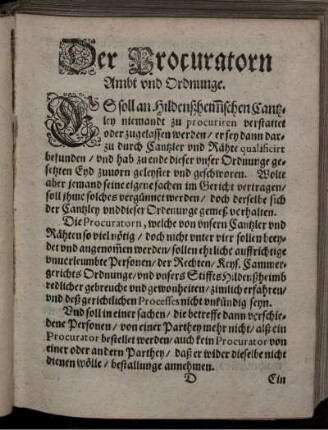 Der Procuratorn
Ambt vnd Ordnunge.
ES soll an Hildenßheimischen Cantz-
ley niemandt zu procuriren verstattet
oder zugelassen werden / er sey dann dar-
zu durch Cantzler vnd Rähte qualificirt
befunden / vnd hab zu ende dieser vnser Ordnunge ge-
setzten Eyd zuuorn geleystet vnd geschworen. Wolte
aber jemand seine eigene sachen im Gericht vertragen /
soll ihme solches vergünnet werden / doch derselbe sich
der Cantzley vnd dieser Ordenunge gemeß verhalten.
Die Procuratorn, welche von vnsern Cantzler vnd
Rähten so viel nötig / doch nicht vnter vier sollen beey-
det vnd angenommen werden / sollen ehrliche auffrichtige
vnuerleumbte Personen / der Rechten / Keys. Cammer-
gerichts Ordnunge / vnd vnsers Stiffts Hildenßheimb
redlicher gebreuche vnd gewonheiten / zimlich erfahren /
vnd deß gerichtlichen Processes nicht vnkündig seyn.
Vnd soll in einer sachen / die betreffe dann verschie-
dene Personen / von einer Parthey mehr nicht / alß ein
Procurator bestellet werden / auch kein Procurator von
einer oder andern Parthey / daß er wider dieselbe nicht
dienen wölle / bestallunge annehmen.
D Ein